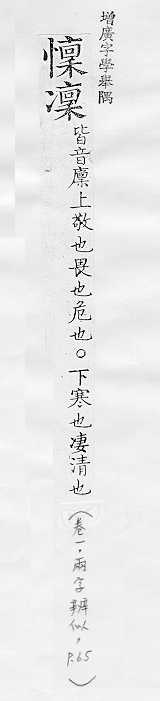 增廣字學舉隅
懍凜皆音廩上敬也畏也危也。下寒也凄清也
(卷一,兩字辨似,P.65)